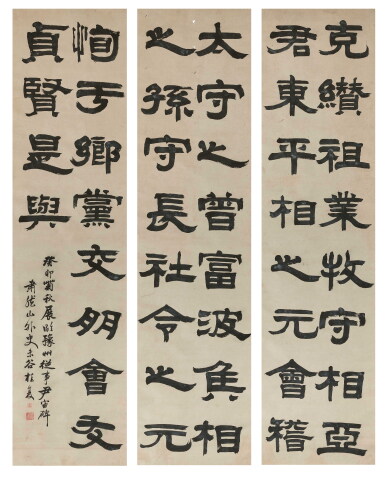 克纘祖業牧守相亞
君東平相之元會稽
太守之曾富波侯相
之孫守長社令之元
恂于鄉黨交朋會友
貞賢是與
癸卯秋展臨豫州從事尹宙碑
肅然山外史未谷桂馥